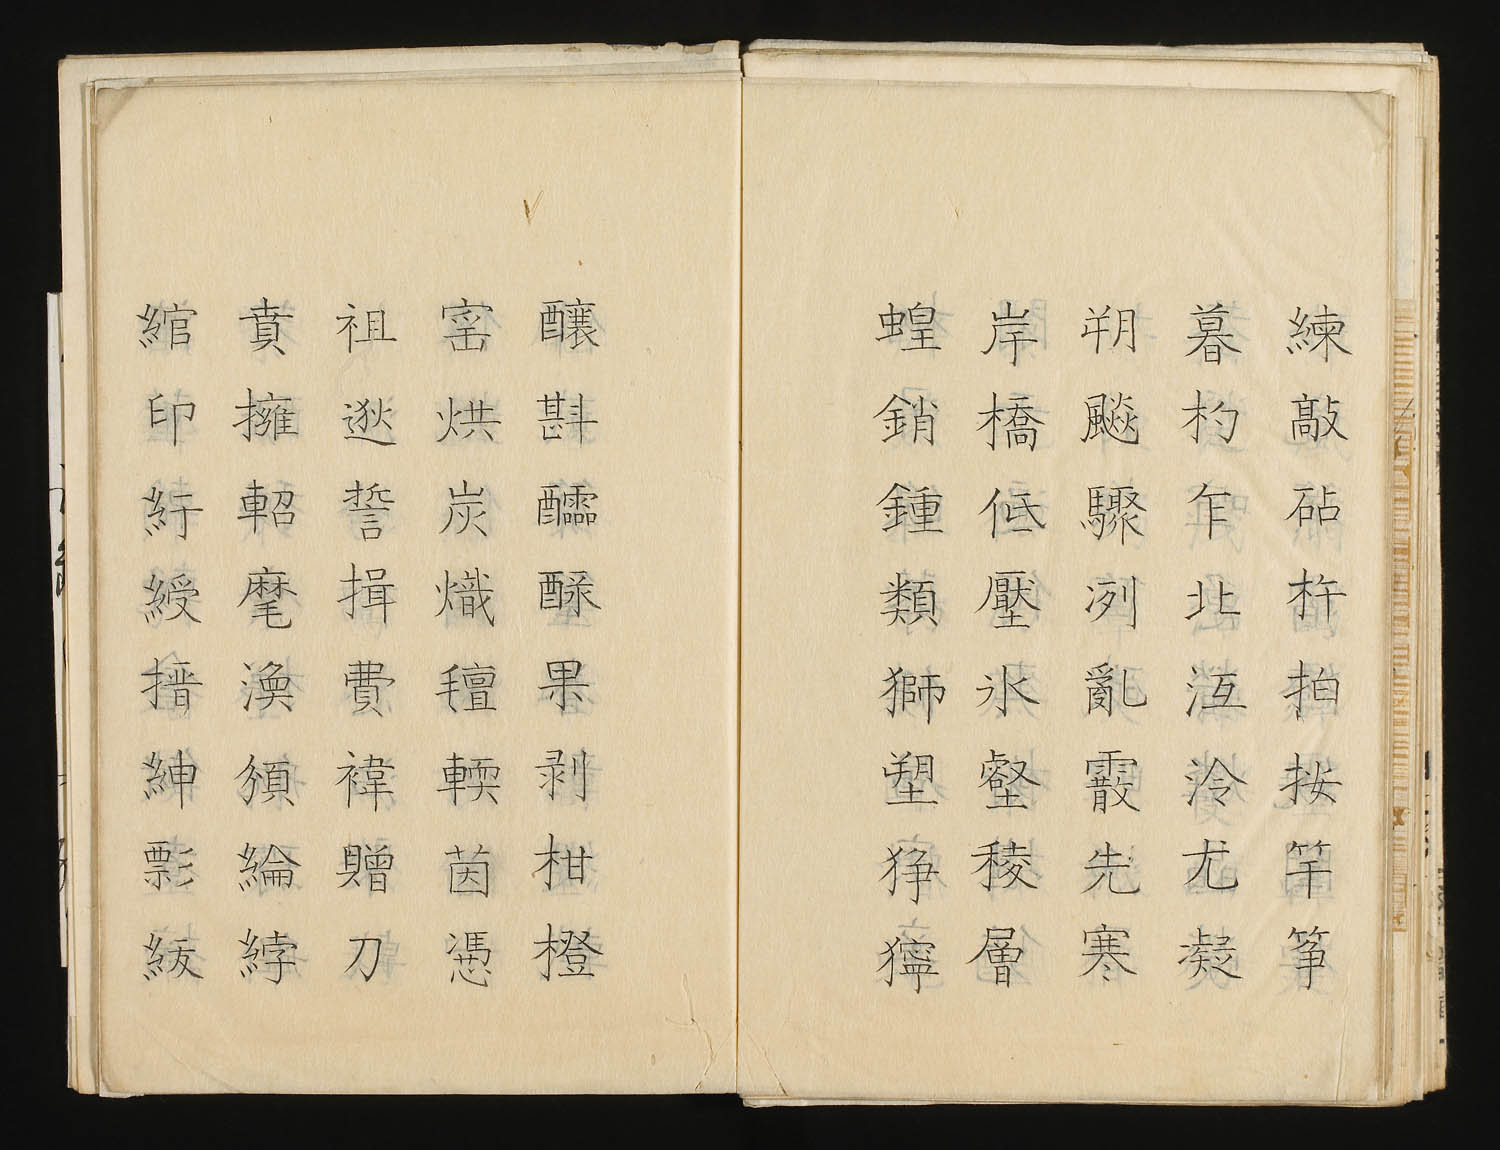 練敲砧杵拍按竿箏
暮杓乍北沍冷尤凝
朔飈驟冽亂霰先寒
岸橋低壓氷壑稜層
蝗銷鍾類獅塑猙獰
釀斟醽酥果剥柑橙
窰烘炭熾氊輭茵憑
祖逖誓揖費褘贈刀
賁擁軺麾渙頒綸綍
綰印紆綬搢紳影紱